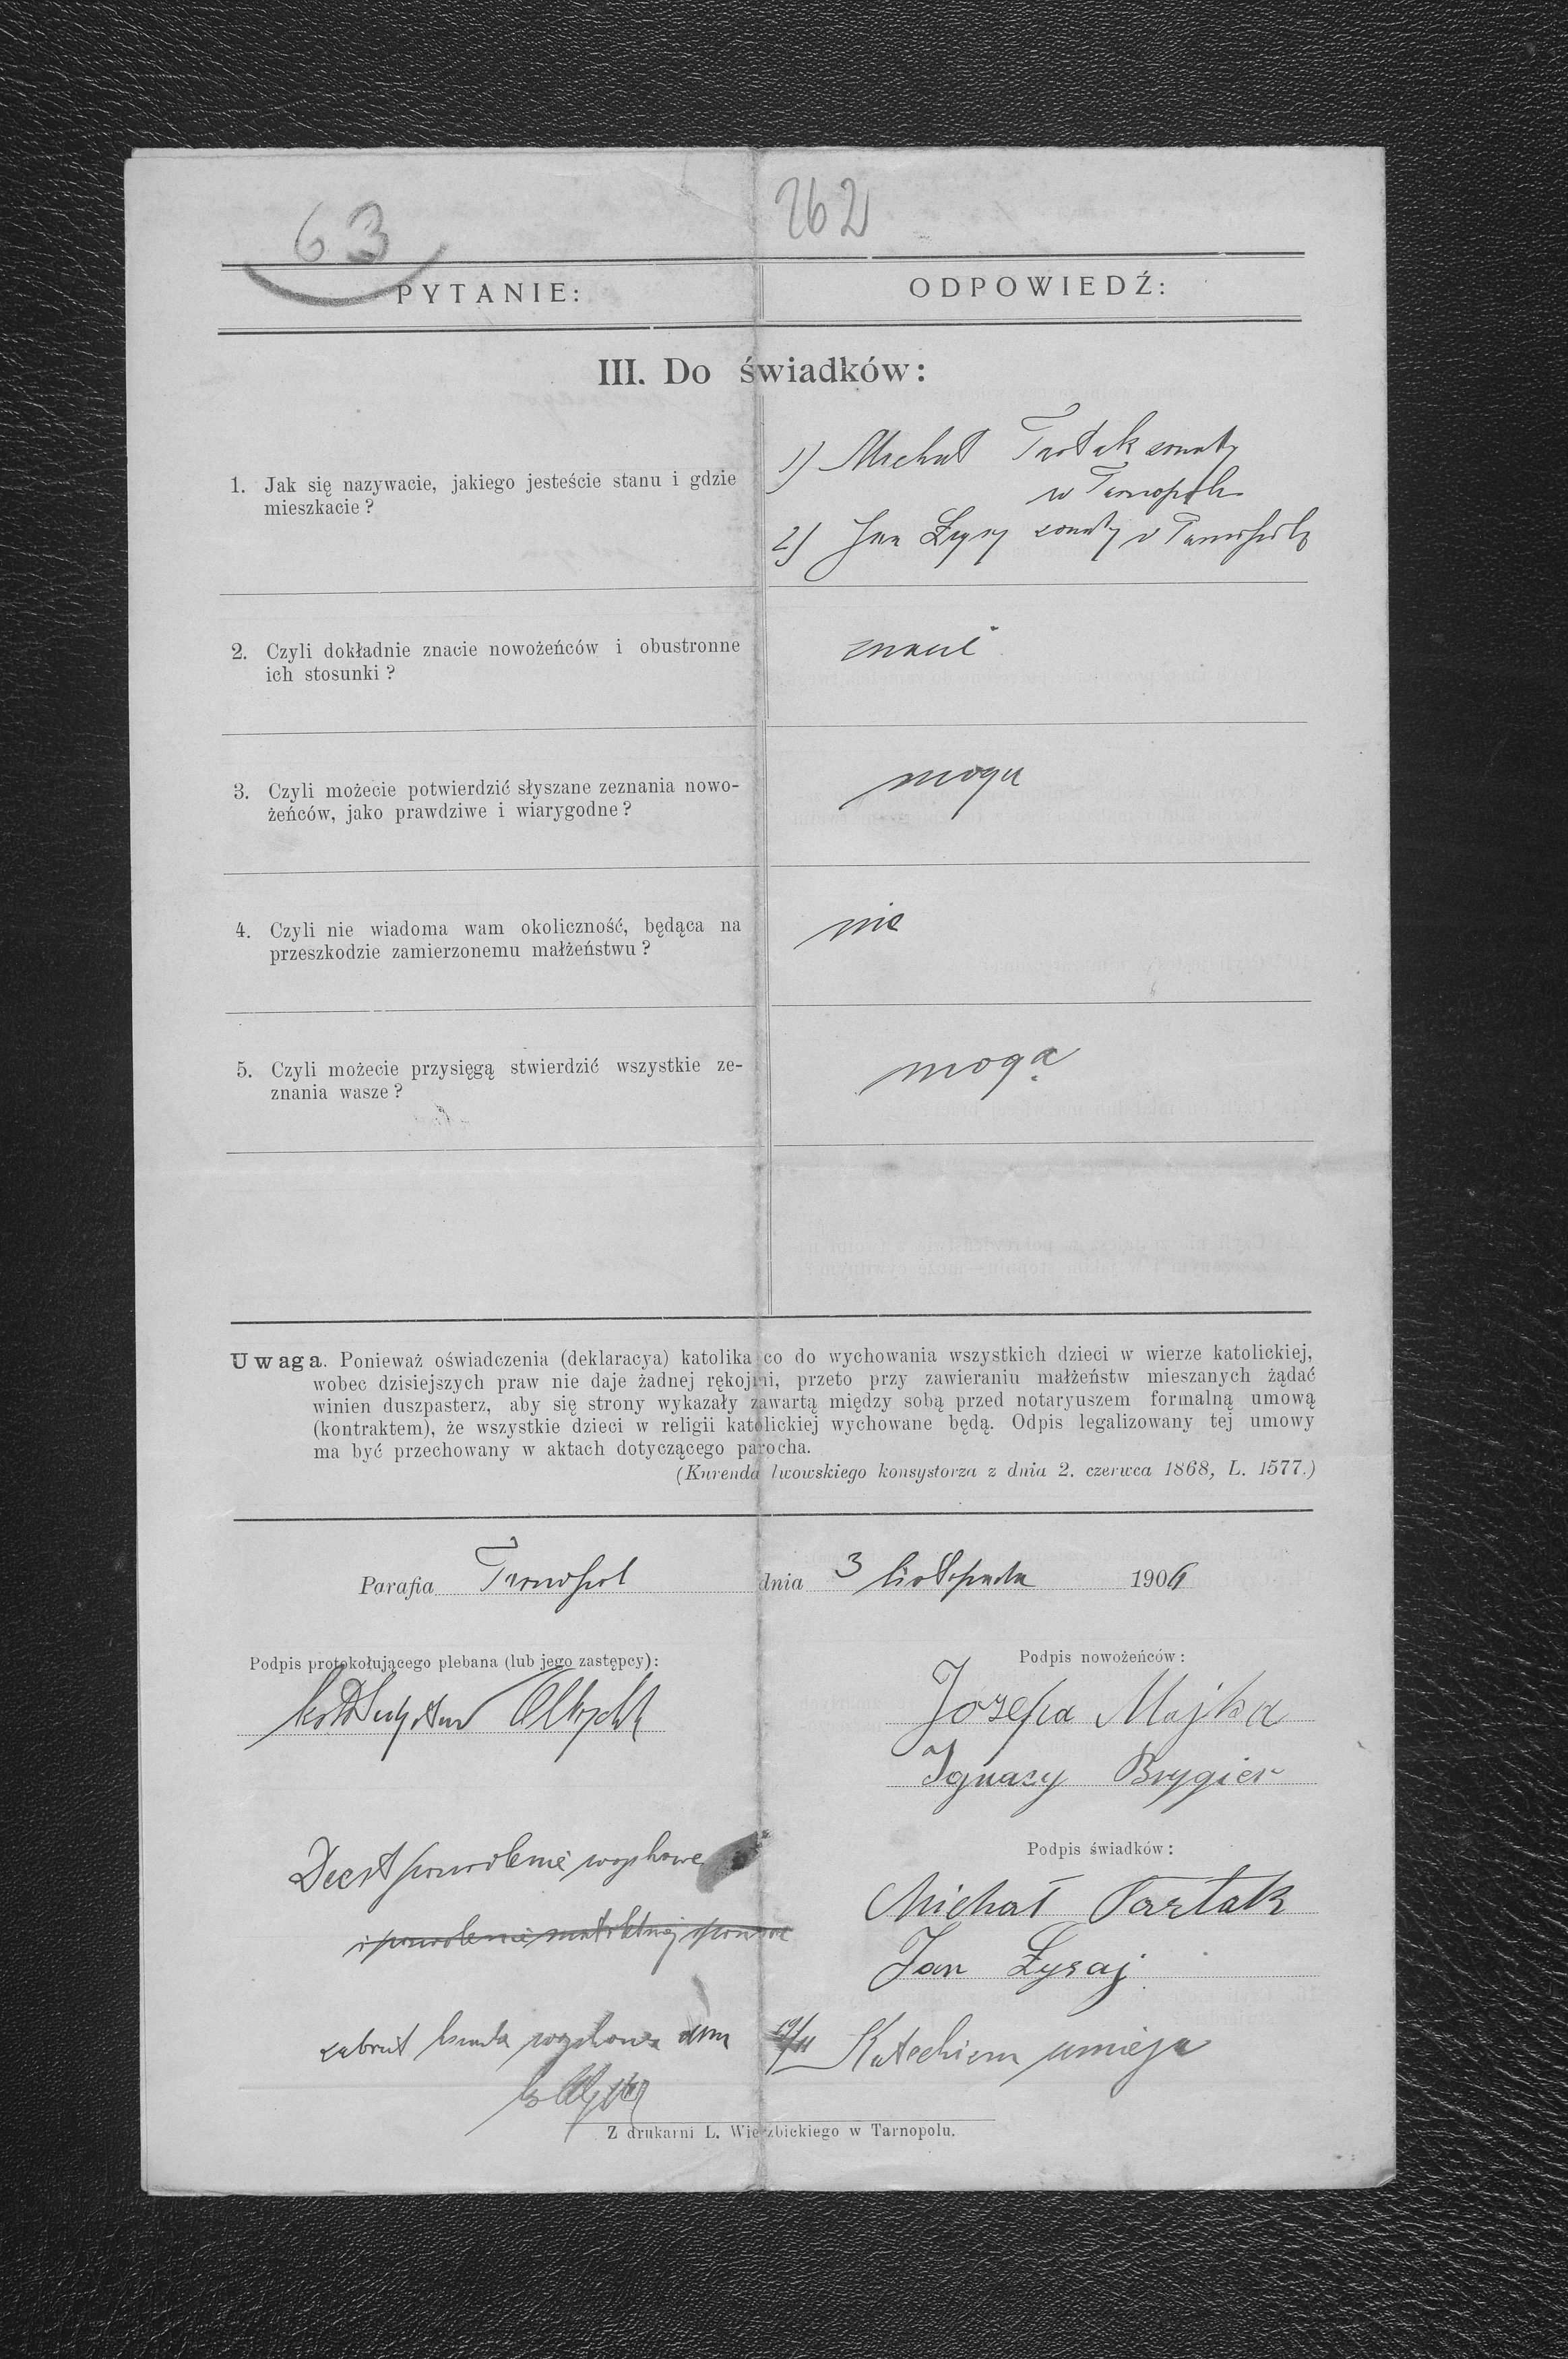 63
262
PYTANIE:
ODPOWIEDŹ:
III. Do świadków:
1. Jak się nazywacie, jakiego jesteście stanu i gdzie
mieszkacie ?
1) Michał Tartak żonaty
w Tarnopolu
2) Jan Łysy żonaty w Tarnopolu
2. Czyli dokładnie znacie nowożeńców i obustronne
ich stosunki ?
3. Czyli możecie potwierdzić słyszane zeznania nowo-
żeńców, jako prawdziwe i wiarygodne ?
mogą
4. Czyli nie wiadoma wam okoliczność, będąca na
przeszkodzie zamierzonemu małżeństwu ?
nie
5. Czyli możecie przysięgą stwierdzić wszystkie ze-
znania wasze ?
mogą
Uwaga. Ponieważ oświadczenia (deklaracya) katolika co do wychowania wszystkich dzieci w wierze katolickiej,
wobec dzisiejszych praw nie daje żadnej rękojmi, przeto przy zawieraniu małżeństw mieszanych żądać
winien duszpasterz, aby się strony wykazały zawartą między sobą przed notaryuszem formalną umową
(kontraktem), że wszystkie dzieci w religii katolickiej wychowane będą. Odpis legalizowany tej umowy
ma być przechowany w aktach dotyczącego parocha.
(Kurenda lwowskiego konsystorza z dnia 2. czerwca 1868, L. 1577.)
Parafia Tarnopol dnia 3 listopada 1906
Podpis protokołującego plebana (lub jego zastępcy):
Podpis nowożeńców:
Józefa Majka
Ignacy Brygier
Deest pozwolenie wojskowe
Podpis świadków:
Michał Tartak
Jan Łysaj
19/11 Katechizm umieją
Z drukarni L. Wierzbickiego w Tarnopolu.